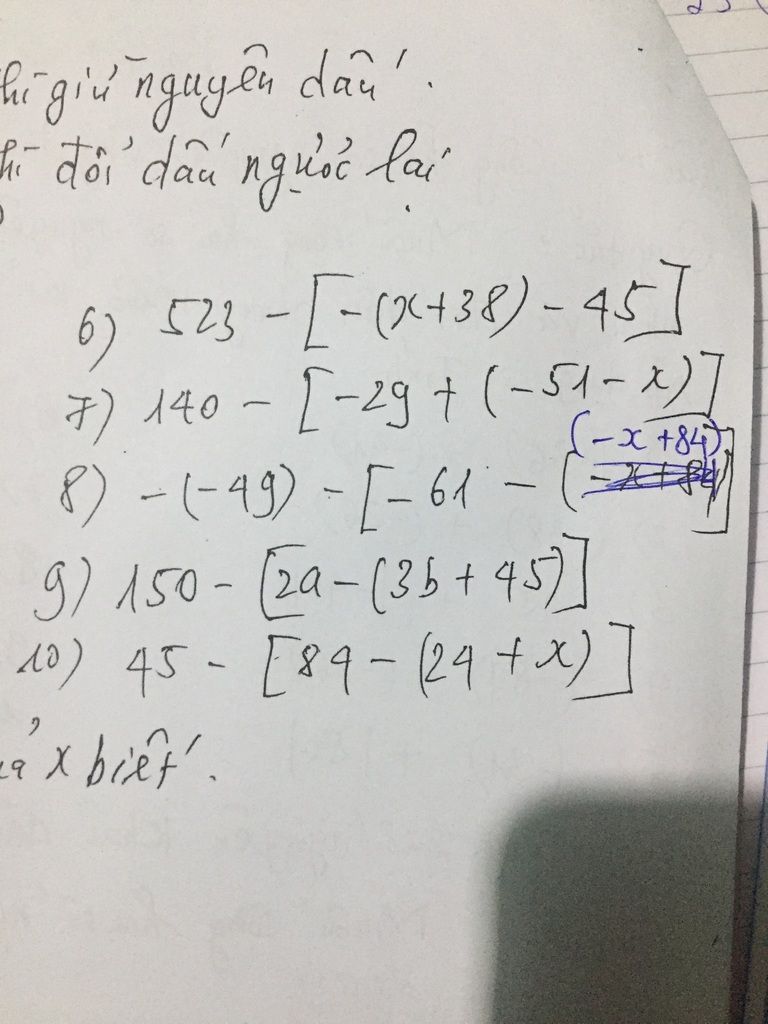 hì giữ nguyên dấu.
hì đổi dấu ngược lại
6) 523 - [-(x+38) - 45]
7) 140 - [-29 + (-51 - x)]
(-x + 84)
8) -(-49) - [-61 - (-x + 84)]
9) 150 - [2a - (3b + 45)]
10) 45 - [84 - (24 + x)]
x biết.